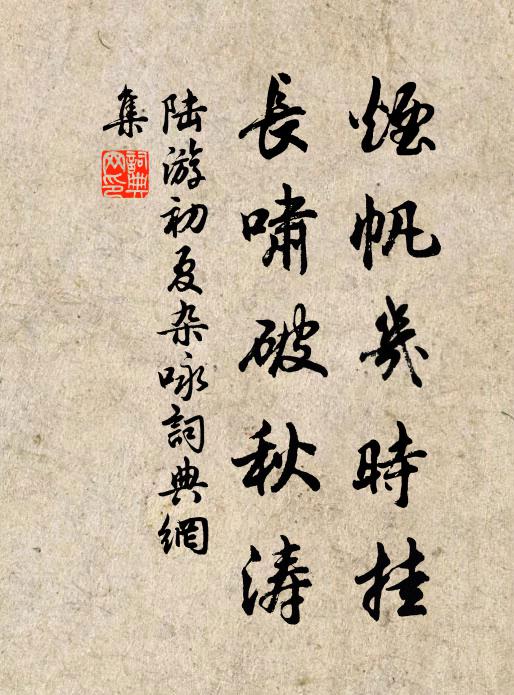 煙帆幾時挂
長嘯破秋濤
陆游初夏杂咏詞典網
集
詞典
网印